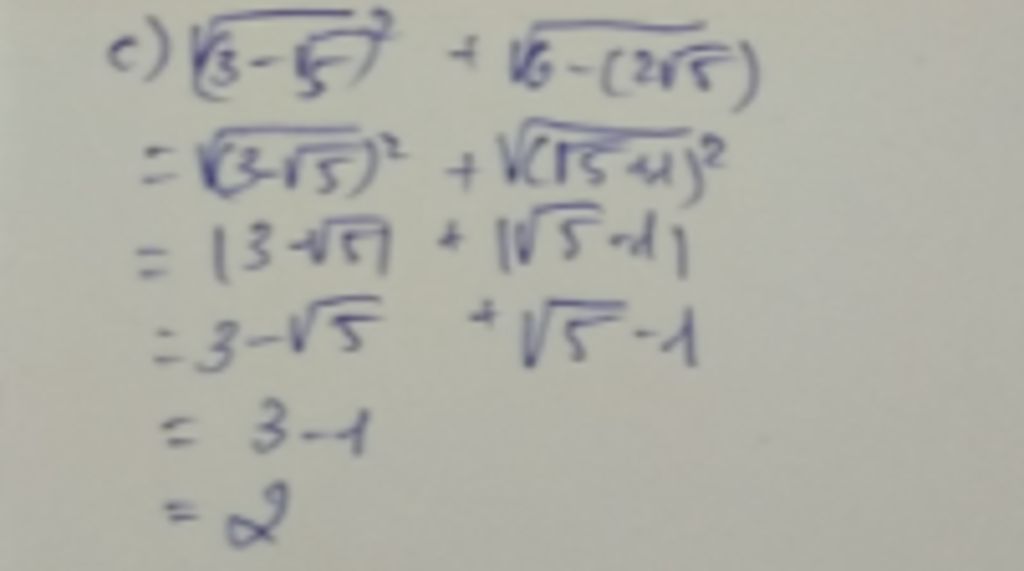 c) √(3-√5)² + √6-(2√5)
= √(3-√5)² + √(√5-1)²
= |3-√5| + |√5-1|
= 3-√5 + √5-1
= 3-1
= 2